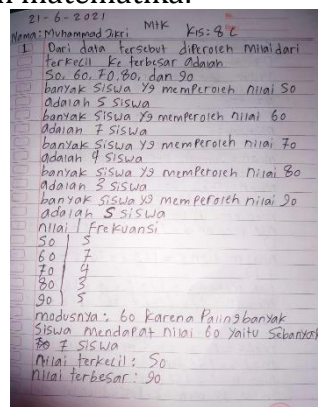 n matematika.
21-6-2021
MTK Kls: 8 C
Nama: Muhammad Zikri
1 Dari data tersebut diperoleh nilai dari
terkecil ke terbesar adalah
50, 60, 70, 80, dan 90
banyak siswa yg memperoleh nilai 50
adalah 5 siswa
banyak siswa yg memperoleh nilai 60
adalah 7 siswa
banyak siswa yg memperoleh nilai 70
adalah 4 siswa
banyak siswa yg memperoleh nilai 80
adalah 3 siswa
banyak siswa yg memperoleh nilai 90
adalah 5 siswa
nilai | Frekuansi
50 | 5
60 | 7
70 | 4
80 | 3
90 | 5
modusnya: 60 karena Paling banyak
siswa mendapat nilai 60 yaitu sebanyak
7 siswa
nilai terkecil: 50
nilai terbesar: 90